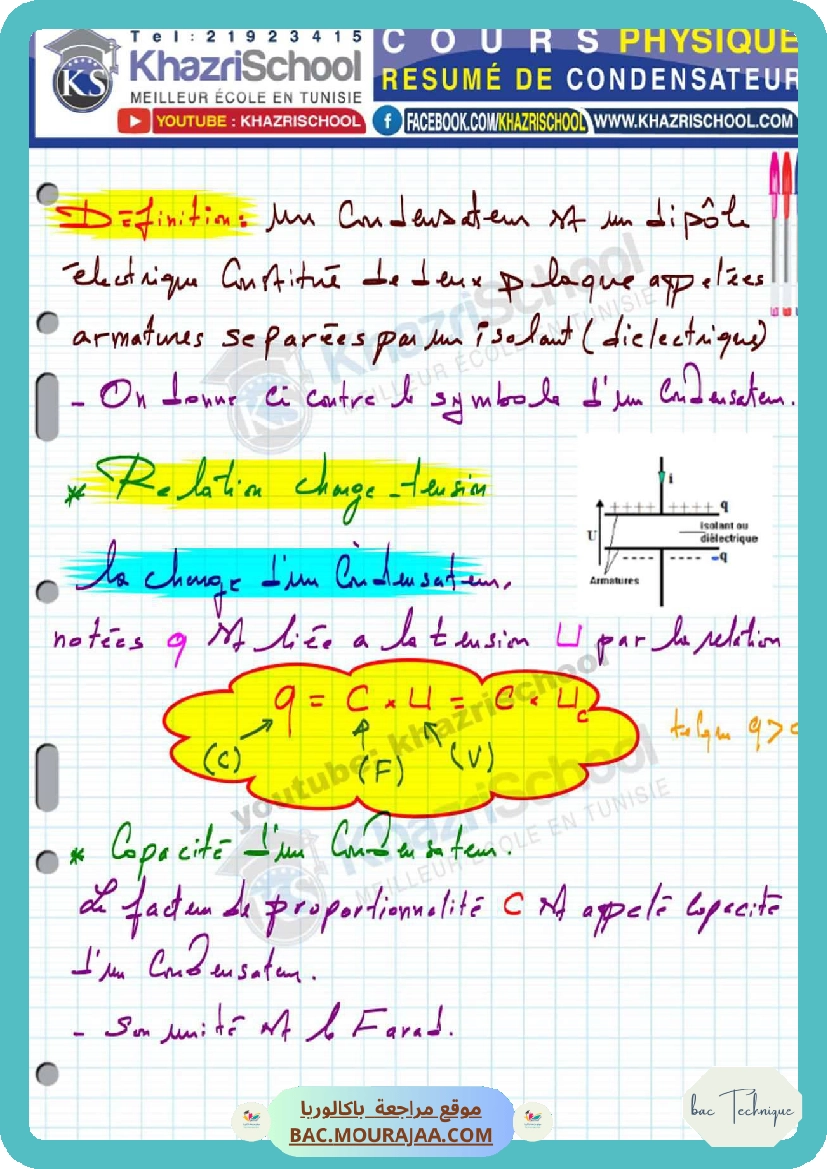 Tel: 21923415
KhazriSchool
MEILLEUR ÉCOLE EN TUNISIE
KS
COURS PHYSIQUE
RESUMÉ DE CONDENSATEUR
YOUTUBE : KHAZRISCHOOL
FACEBOOK.COM/KHAZRISCHOOL
WWW.KHAZRISCHOOL.COM
Définition: Un Condensateur est un dipôle
électrique Constitué de deux plaque appelées
armatures separées par un isolant (dielectrique)
- On donne ci contre le symbole d'un Condensateur.
* Relation charge-tension
i
+ + + + + + q
U
isolant ou
diélectrique
- - - - - - -q
Armatures
la charge d'un Condensateur,
notées q est liée a la tension U par la relation
q = C × U = C × Uc
(C) (F) (V)
telque q>
* Capacité d'un Condensateur.
Le facteur de proportionnalité C est appelé Capacité
d'un Condensateur.
- Son unité est le Farad.
KhazriSchool
MEILLEUR ÉCOLE EN TUNISIE
youtube: khazrischool
موقع مراجعة باكالوريا
BAC.MOURAJAA.COM
bac Technique